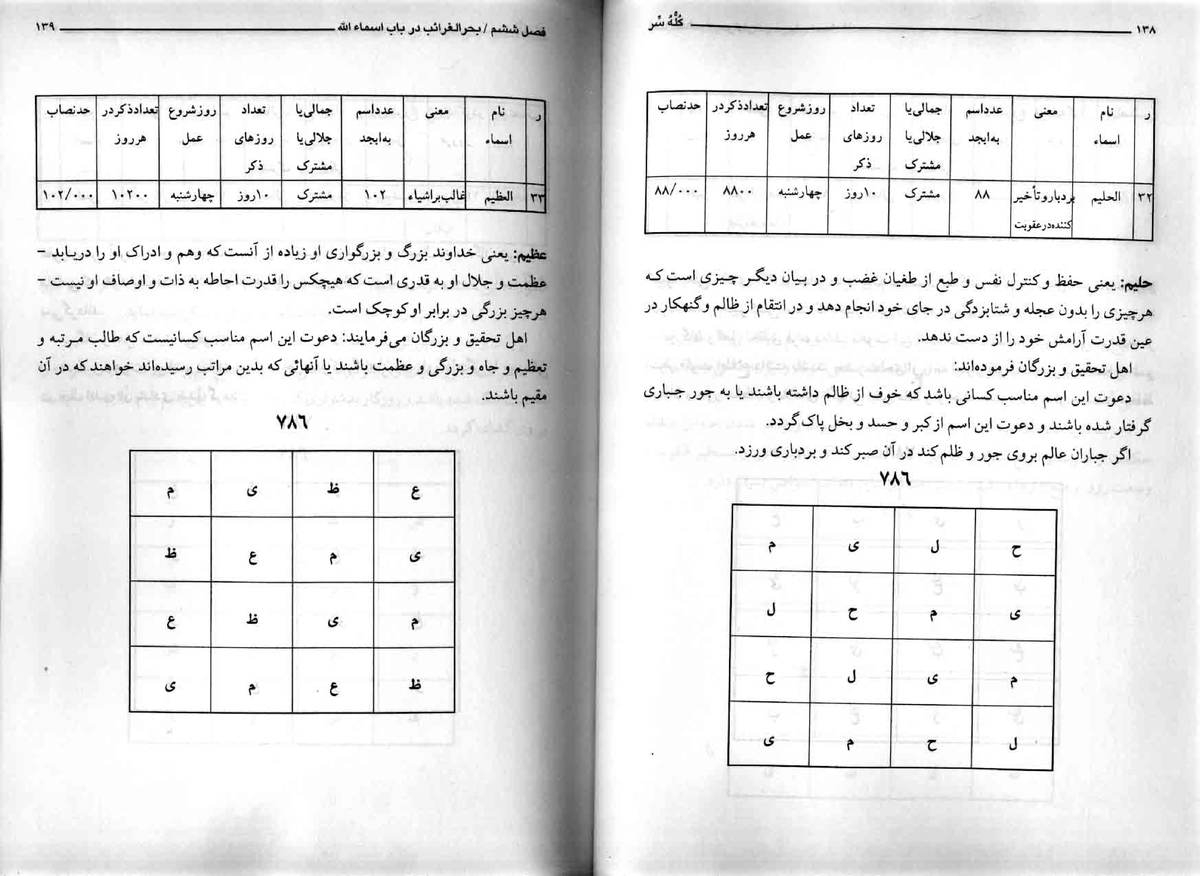 ۱۳۸ كُلُّهُ سِّر
ر | نام اسماء | معنی | عدد اسم به ابجد | جمالی یا جلالی یا مشترک | تعداد روزهای ذکر | روز شروع عمل | تعداد ذکر در هر روز | حد نصاب
۳۲ | الحلیم | بردبار و تأخیر کننده در عقوبت | ۸۸ | مشترک | ۱۰ روز | چهارشنبه | ۸۸۰۰ | ۸۸/۰۰۰
حلیم: یعنی حفظ و کنترل نفس و طبع از طغیان غضب و در بیان دیگر چیزی است که
هرچیزی را بدون عجله و شتابزدگی در جای خود انجام دهد و در انتقام از ظالم و گنهکار در
عین قدرت آرامش خود را از دست ندهد.
اهل تحقیق و بزرگان فرموده‌اند:
دعوت این اسم مناسب کسانی باشد که خوف از ظالم داشته باشند یا به جور جباری
گرفتار شده باشند و دعوت این اسم از کبر و حسد و بخل پاک گردد.
اگر جباران عالم بروی جور و ظلم کند در آن صبر کند و بردباری ورزد.
۷۸۶
ح ل ی م
ی م ح ل
م ی ل ح
ل ح م ی
فصل ششم / بحرالغرائب در باب اسماء الله ۱۳۹
ر | نام اسماء | معنی | عدد اسم به ابجد | جمالی یا جلالی یا مشترک | تعداد روزهای ذکر | روز شروع عمل | تعداد ذکر در هر روز | حد نصاب
۳۳ | الظیم | غالب بر اشیاء | ۱۰۲ | مشترک | ۱۰ روز | چهارشنبه | ۱۰۲۰۰ | ۱۰۲/۰۰۰
عظیم: یعنی خداوند بزرگ و بزرگواری او زیاده از آنست که وهم و ادراک او را دریابد -
عظمت و جلال او به قدری است که هیچکس را قدرت احاطه به ذات و اوصاف او نیست -
هرچیز بزرگی در برابر او کوچک است.
اهل تحقیق و بزرگان می‌فرمایند: دعوت این اسم مناسب کسانیست که طالب مرتبه و
تعظیم و جاه و بزرگی و عظمت باشند یا آنهائی که بدین مراتب رسیده‌اند خواهند که در آن
مقیم باشند.
۷۸۶
ع ظ ی م
ی م ع ظ
م ی ظ ع
ظ ع م ی